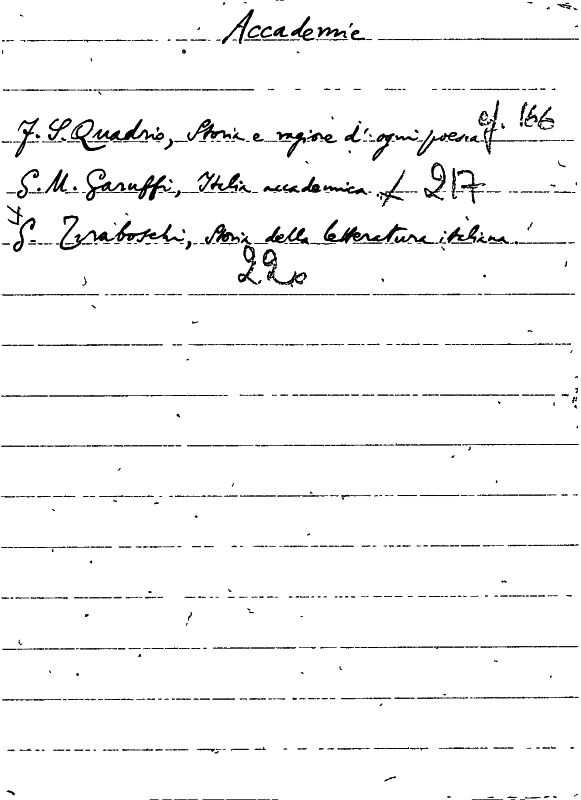 Accademie
F. S. Quadrio, Storia e ragione d'ogni poesia cf. 166
G. M. Garuffi, Italia accademica f 217
G. Tiraboschi, Storia della letteratura italiana.
220